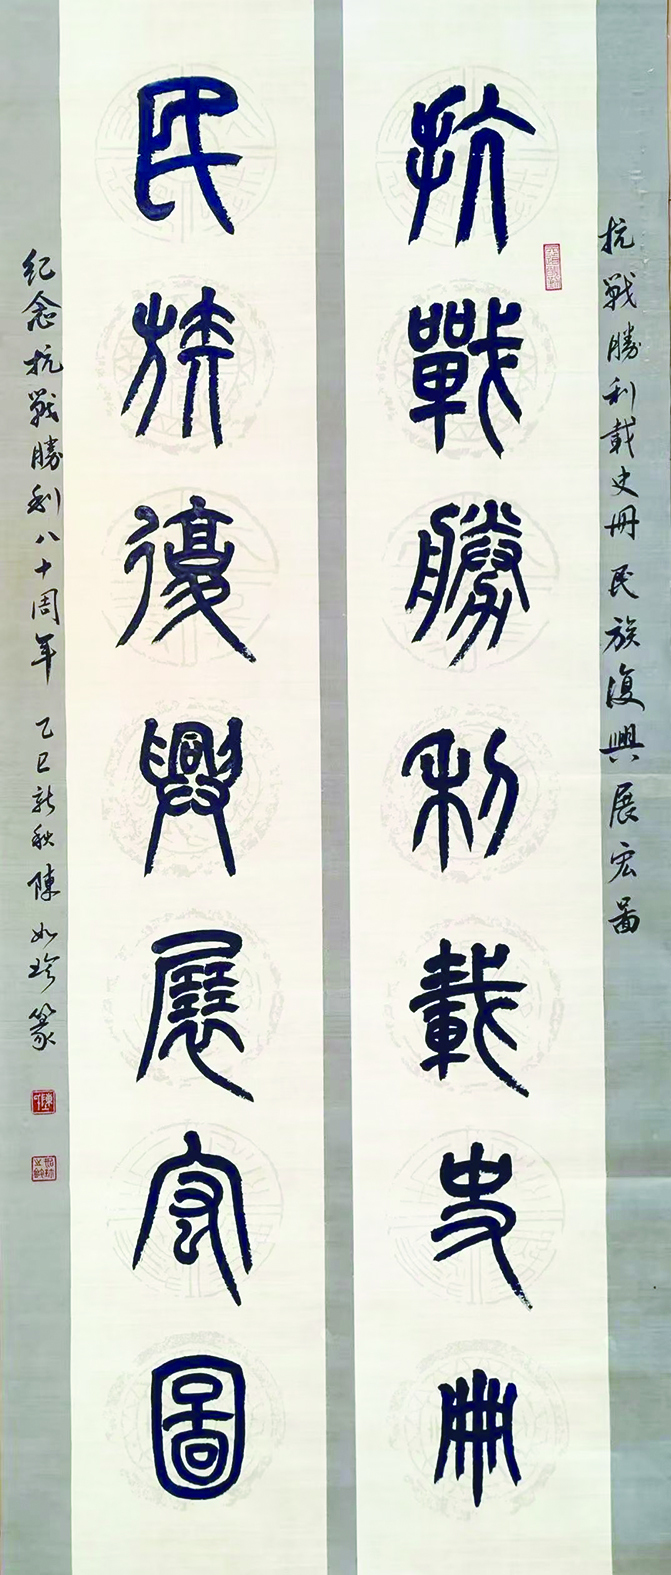 抗戰勝利載史冊民族復興展宏圖
抗戰勝利載史冊
民族復興展宏圖
紀念抗戰勝利八十周年 乙巳新秋 陳如珍篆